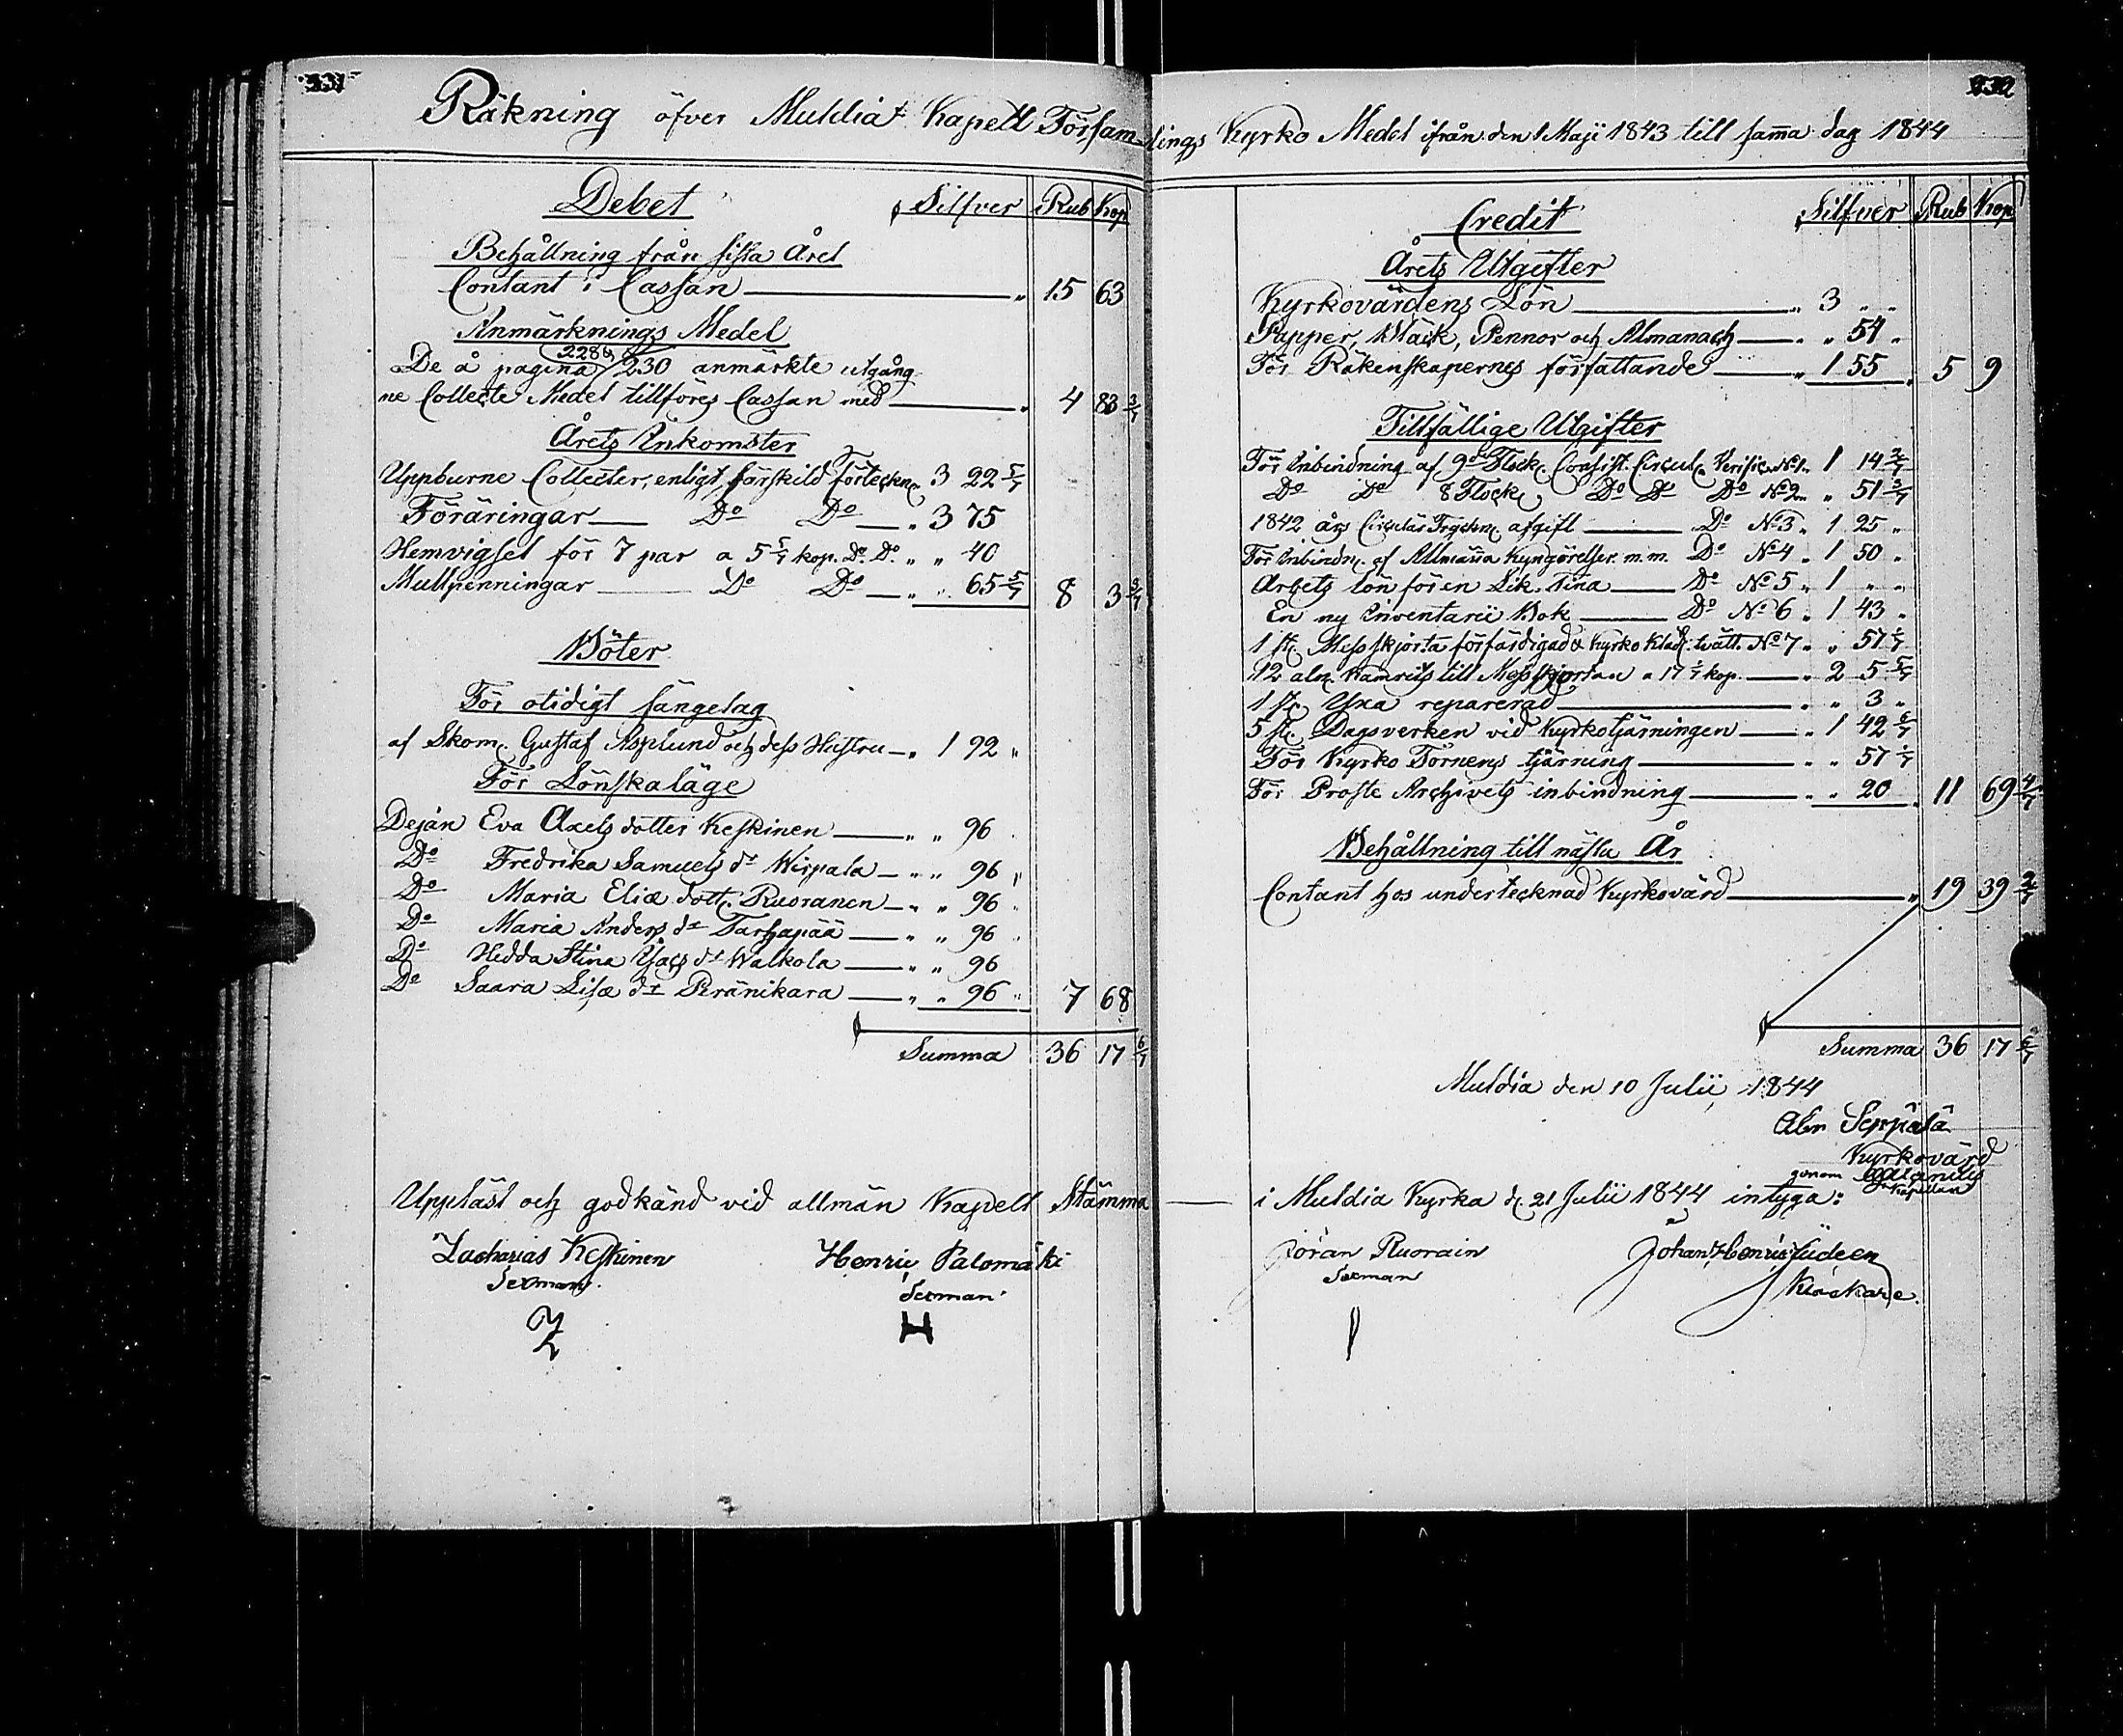 231
Räkning öfver Muldia Kapell Församlings Kyrko Medel ifrån den 1 Maji 1843 till samma dag 1844
Debet Silfver Rub Kop
Behållning från sista Året
Contant i Cassan 15 63
Anmärknings Medel
228 &
De å pagina 230 anmärkte utgång
ne Collecte Medel tillföres Cassan med 4 83 3/7
Årets Inkomster
Uppburne Collecter, enligt särskild förteckn. 3 22 5/7
Föräringar Do Do 3 75
Hemvigsel för 7 par a 5 5/7 kop. Do. Do. " " 40
Mullpenningar Do Do " 65 5/7 8 3 3/7
Böter
För otidigt sängelag
af Skom. Gustaf Asplund och dess Hustru 1 92 "
För Lönskaläge
Dejan Eva Axels dotter Keskinen " " 96
Do Fredrika Samuels dr Wirpala " " 96 "
Do Maria Eliæ dott. Ruoranen " " 96
Do Maria Anders dr Tarhapää " " 96
Do Hedda Stina Isacs dr Walkola " " 96
Do Saara Lisæ dr Peränikara " " 96 " 7 68
Summa 36 17 6/7
Uppläst och godkänd vid allmän Kapell Stämma
Zacharias Keskinen Henric Palomäki
Sexman. Sexman.
Z H
232
Credit Silfver Rub Kop
Årets Utgifter
Kyrkovärdens Lön " 3 " "
Papper, Bläck, Pennor och Almanach " " 54 "
För Räkenskapernes författande " 1 55 " 5 9
Tillfällige Utgifter
För Inbindning af 9de Flock. Consist. Circul. Verific. No 1. 1 14 2/7
Do Do 8 Flock Do Do Do No 2 " 51 3/7
1842 års Circulär Tryckn. afgift Do No 3 " 1 25 "
För Inbindn. af Allmänna Kungörelser m.m. Do No 4 " 1 50 "
Arbets lön för en Lik. Tina Do No 5 " 1 " "
En ny Inventarii Bok Do No 6 " 1 43 "
1 st. Messskjorta förfärdigad & Kyrko Kläd. tvätt. No 7 " " 57 1/7
12 aln. Kamrits till Messskjortan a 17 1/7 kop. " 2 5 5/7
1 st. Yxa reparerad " " 3 "
5 st. Dagsverken vid Kyrkotjärningen " 1 42 6/7
För Kyrko Tornens tjärning " " 57 1/7
För Proste Archivets inbindning " " 20 " 11 69 4/7
Behållning till nästa År
Contant hos undertecknad Kyrkovärd " 19 39 2/7
Summa 36 17 6/7
Muldia den 10 Julii, 1844
Abr Seppälä
Kyrkovärd
genom
Kapellan
i Muldia Kyrka d. 21 Julii 1844 intyga:
Jöran Ruorain Johan Henric
Sexman Klockare.